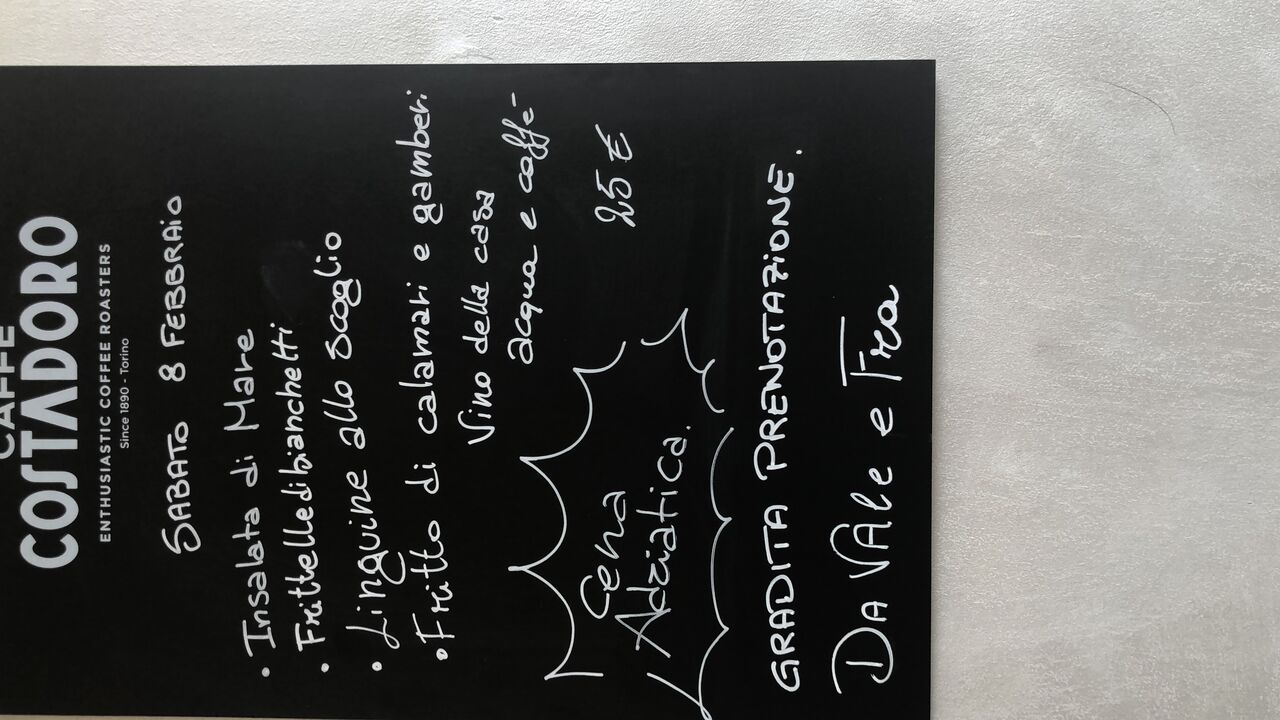 CAFFÈ
COSTADORO
ENTHUSIASTIC COFFEE ROASTERS
Since 1890 - Torino
SABATO 8 FEBBRAIO
• Insalata di Mare
• Frittelle di bianchetti
• Linguine allo scoglio
• Fritto di calamari e gamberi
Vino della casa
acqua e caffè
25 €
Cena
Adriatica.
GRADITA PRENOTAZIONE.
DA VAle e Fra